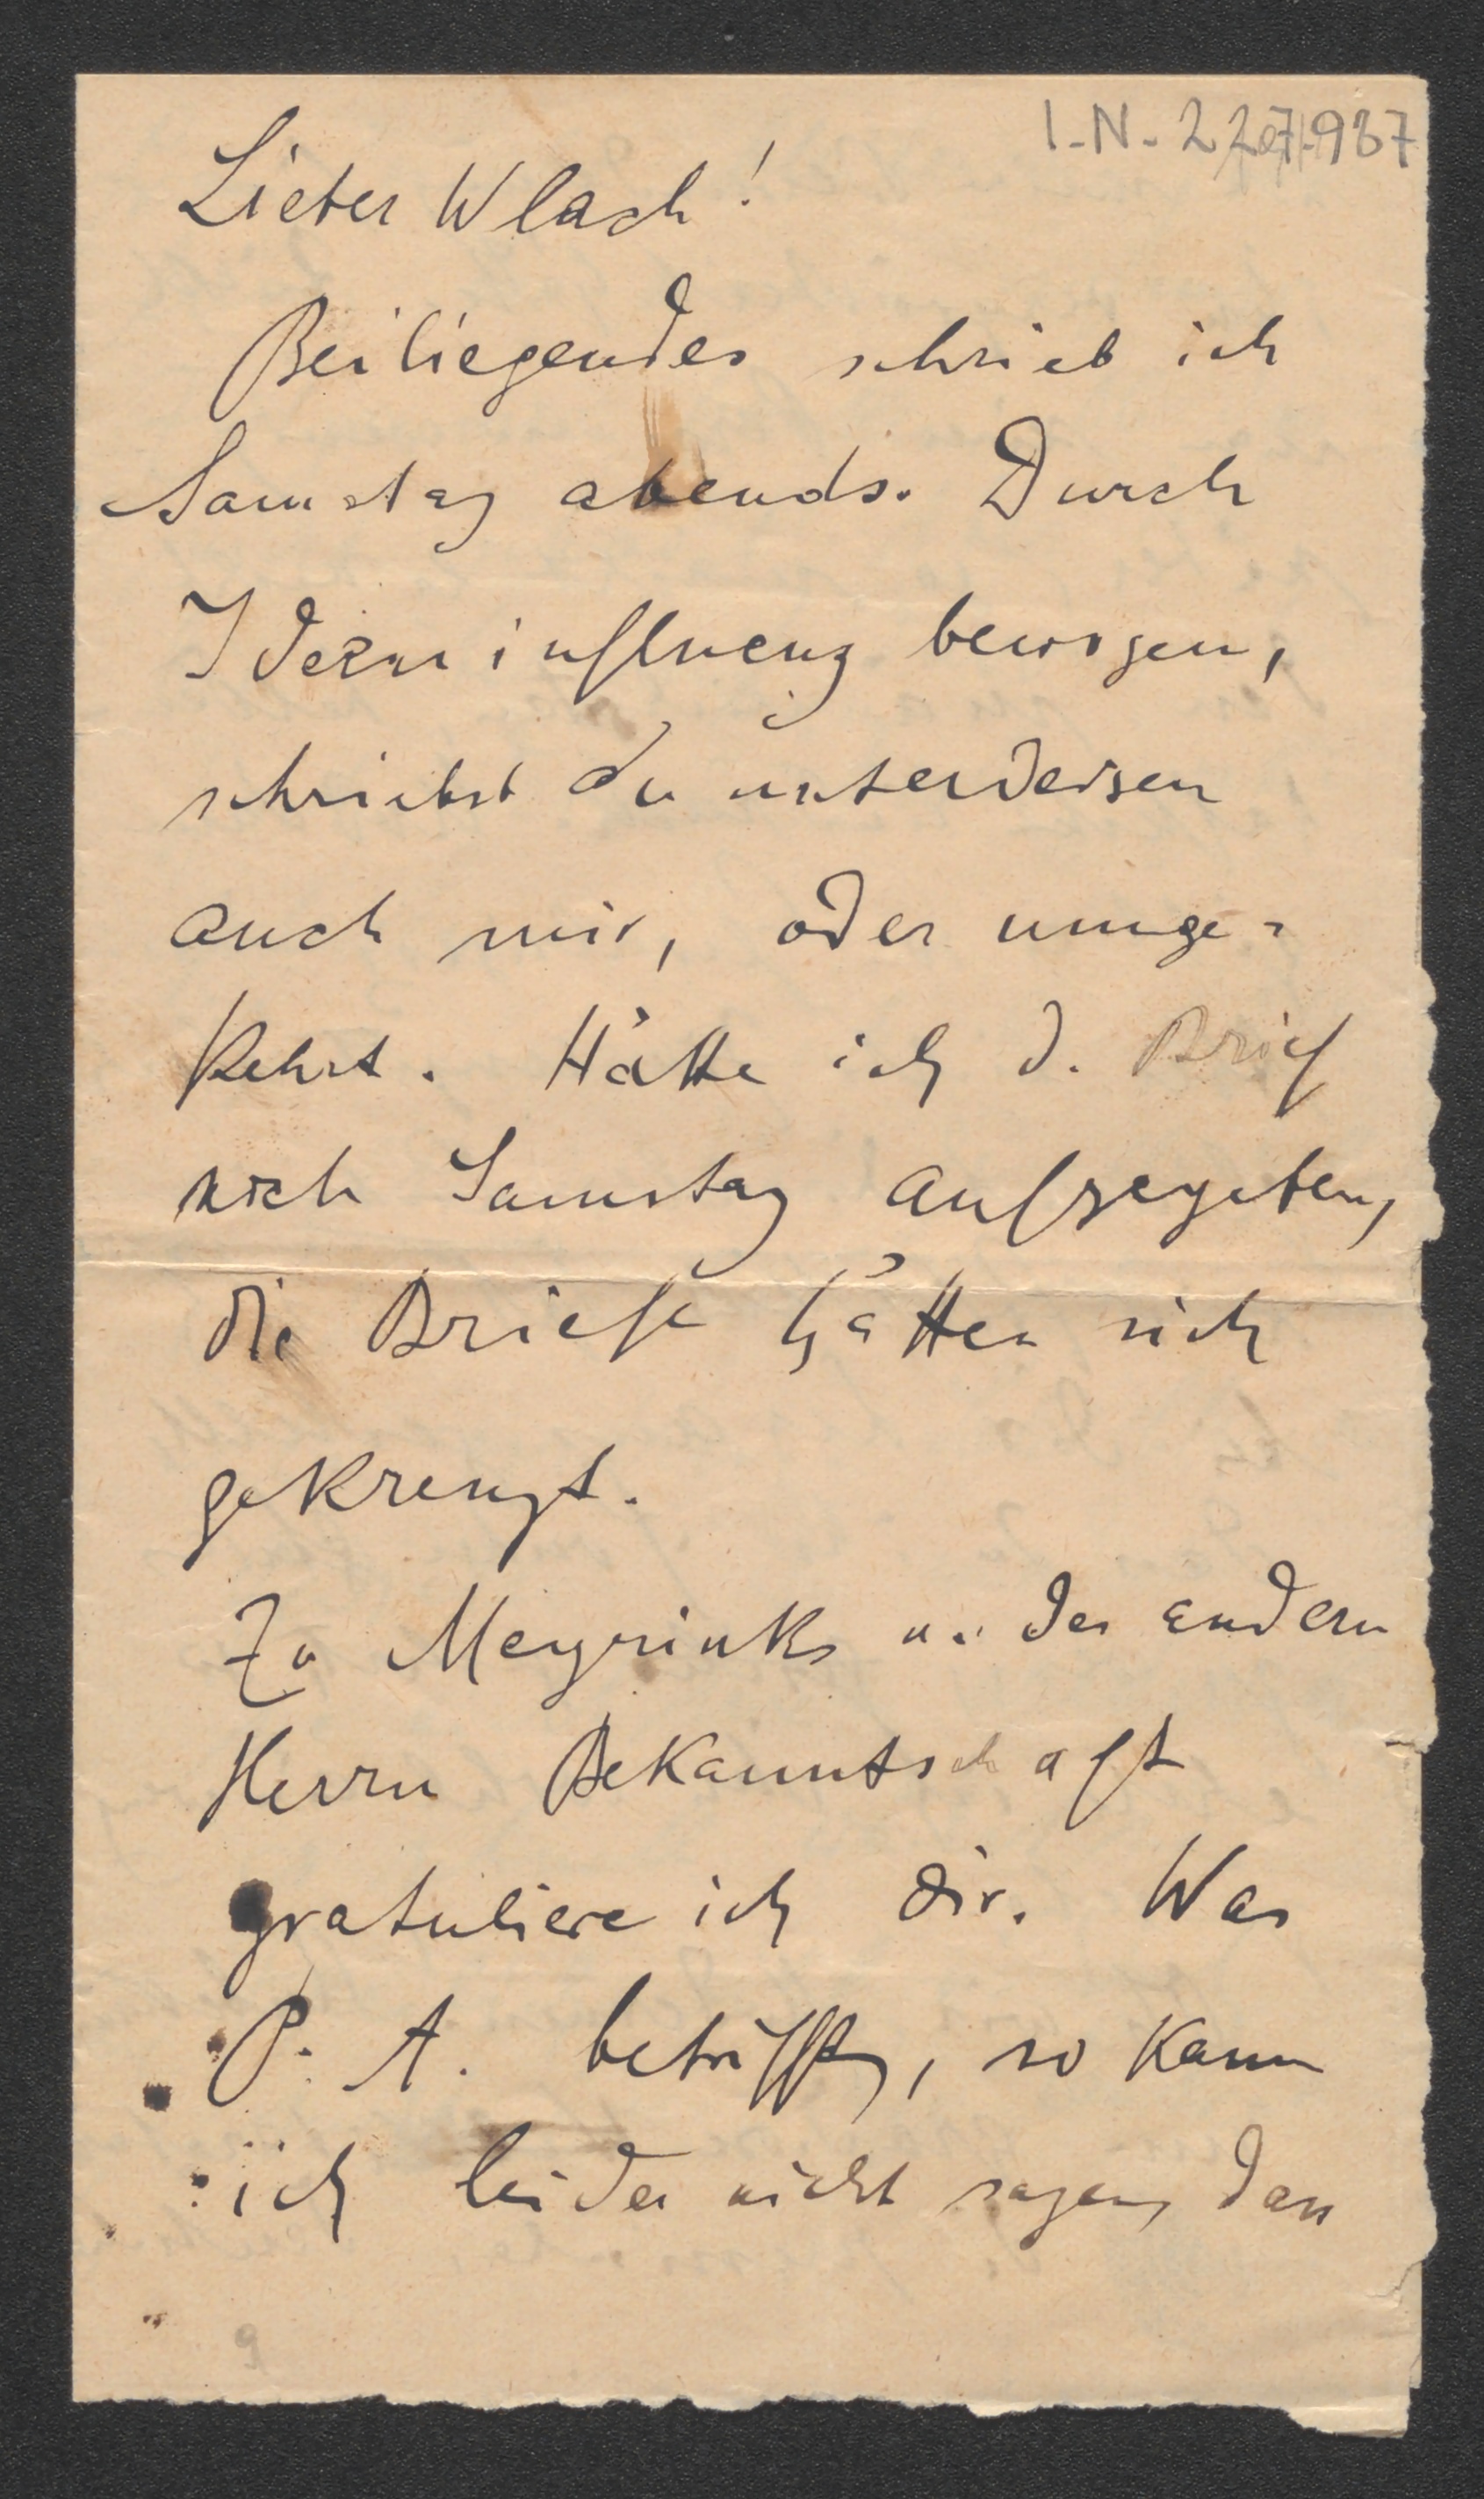 I.N. 227.937
Lieber Wlach!
Beiliegendes schrieb ich
Samstag abends. Durch
Ideeninfluenz bewogen,
schriebst du unterdessen
auch mir, oder umge-
kehrt. Hätte ich d. Brief
noch Samstag aufgegeben,
die Briefe hätten sich
gekreuzt.
Zu Meyrinks u. der andern
Herrn Bekanntschaft
gratuliere ich dir. Was
P. A. betrifft, so kann
ich leider nicht sagen, dass